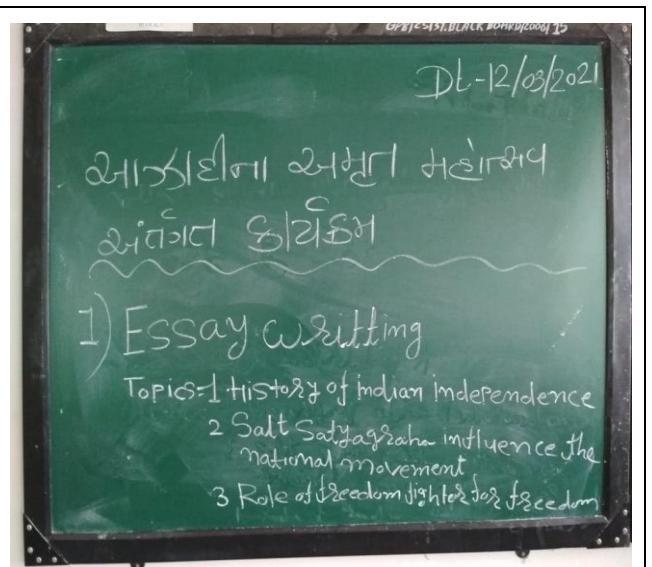 GPB/CS/ST.BLACK BOARD/2008/15
Dt-12/03/2021
આઝાદીના અમૃત મહોત્સવ
અંતર્ગત કાર્યક્રમ
1) Essay writting
Topics:-1 History of indian independence
2 Salt Satyagraha influence the
national movement
3 Role of freedom fighter for freedom